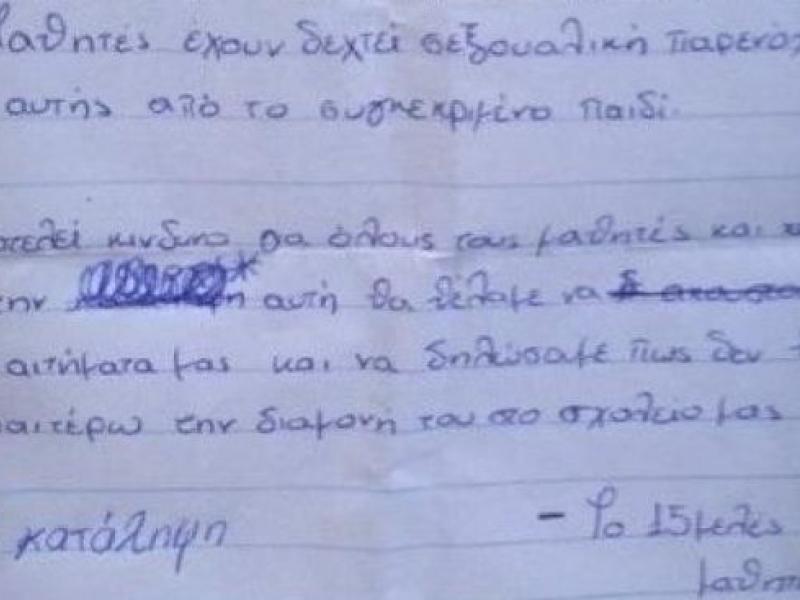 μαθητές έχουν δεχτεί σεξουαλική παρενόχ
αυτής από το συγκεκριμένο παιδί.
οτελεί κίνδυνο για όλους τους μαθητές και
την αυτή θα θέλαμε να
αιτήματα μας και να δηλώσαμε πως δεν
αιτέρω την διαμονή του στο σχολείο μας
κατάληψη
- Το 15μελές
μαθητ